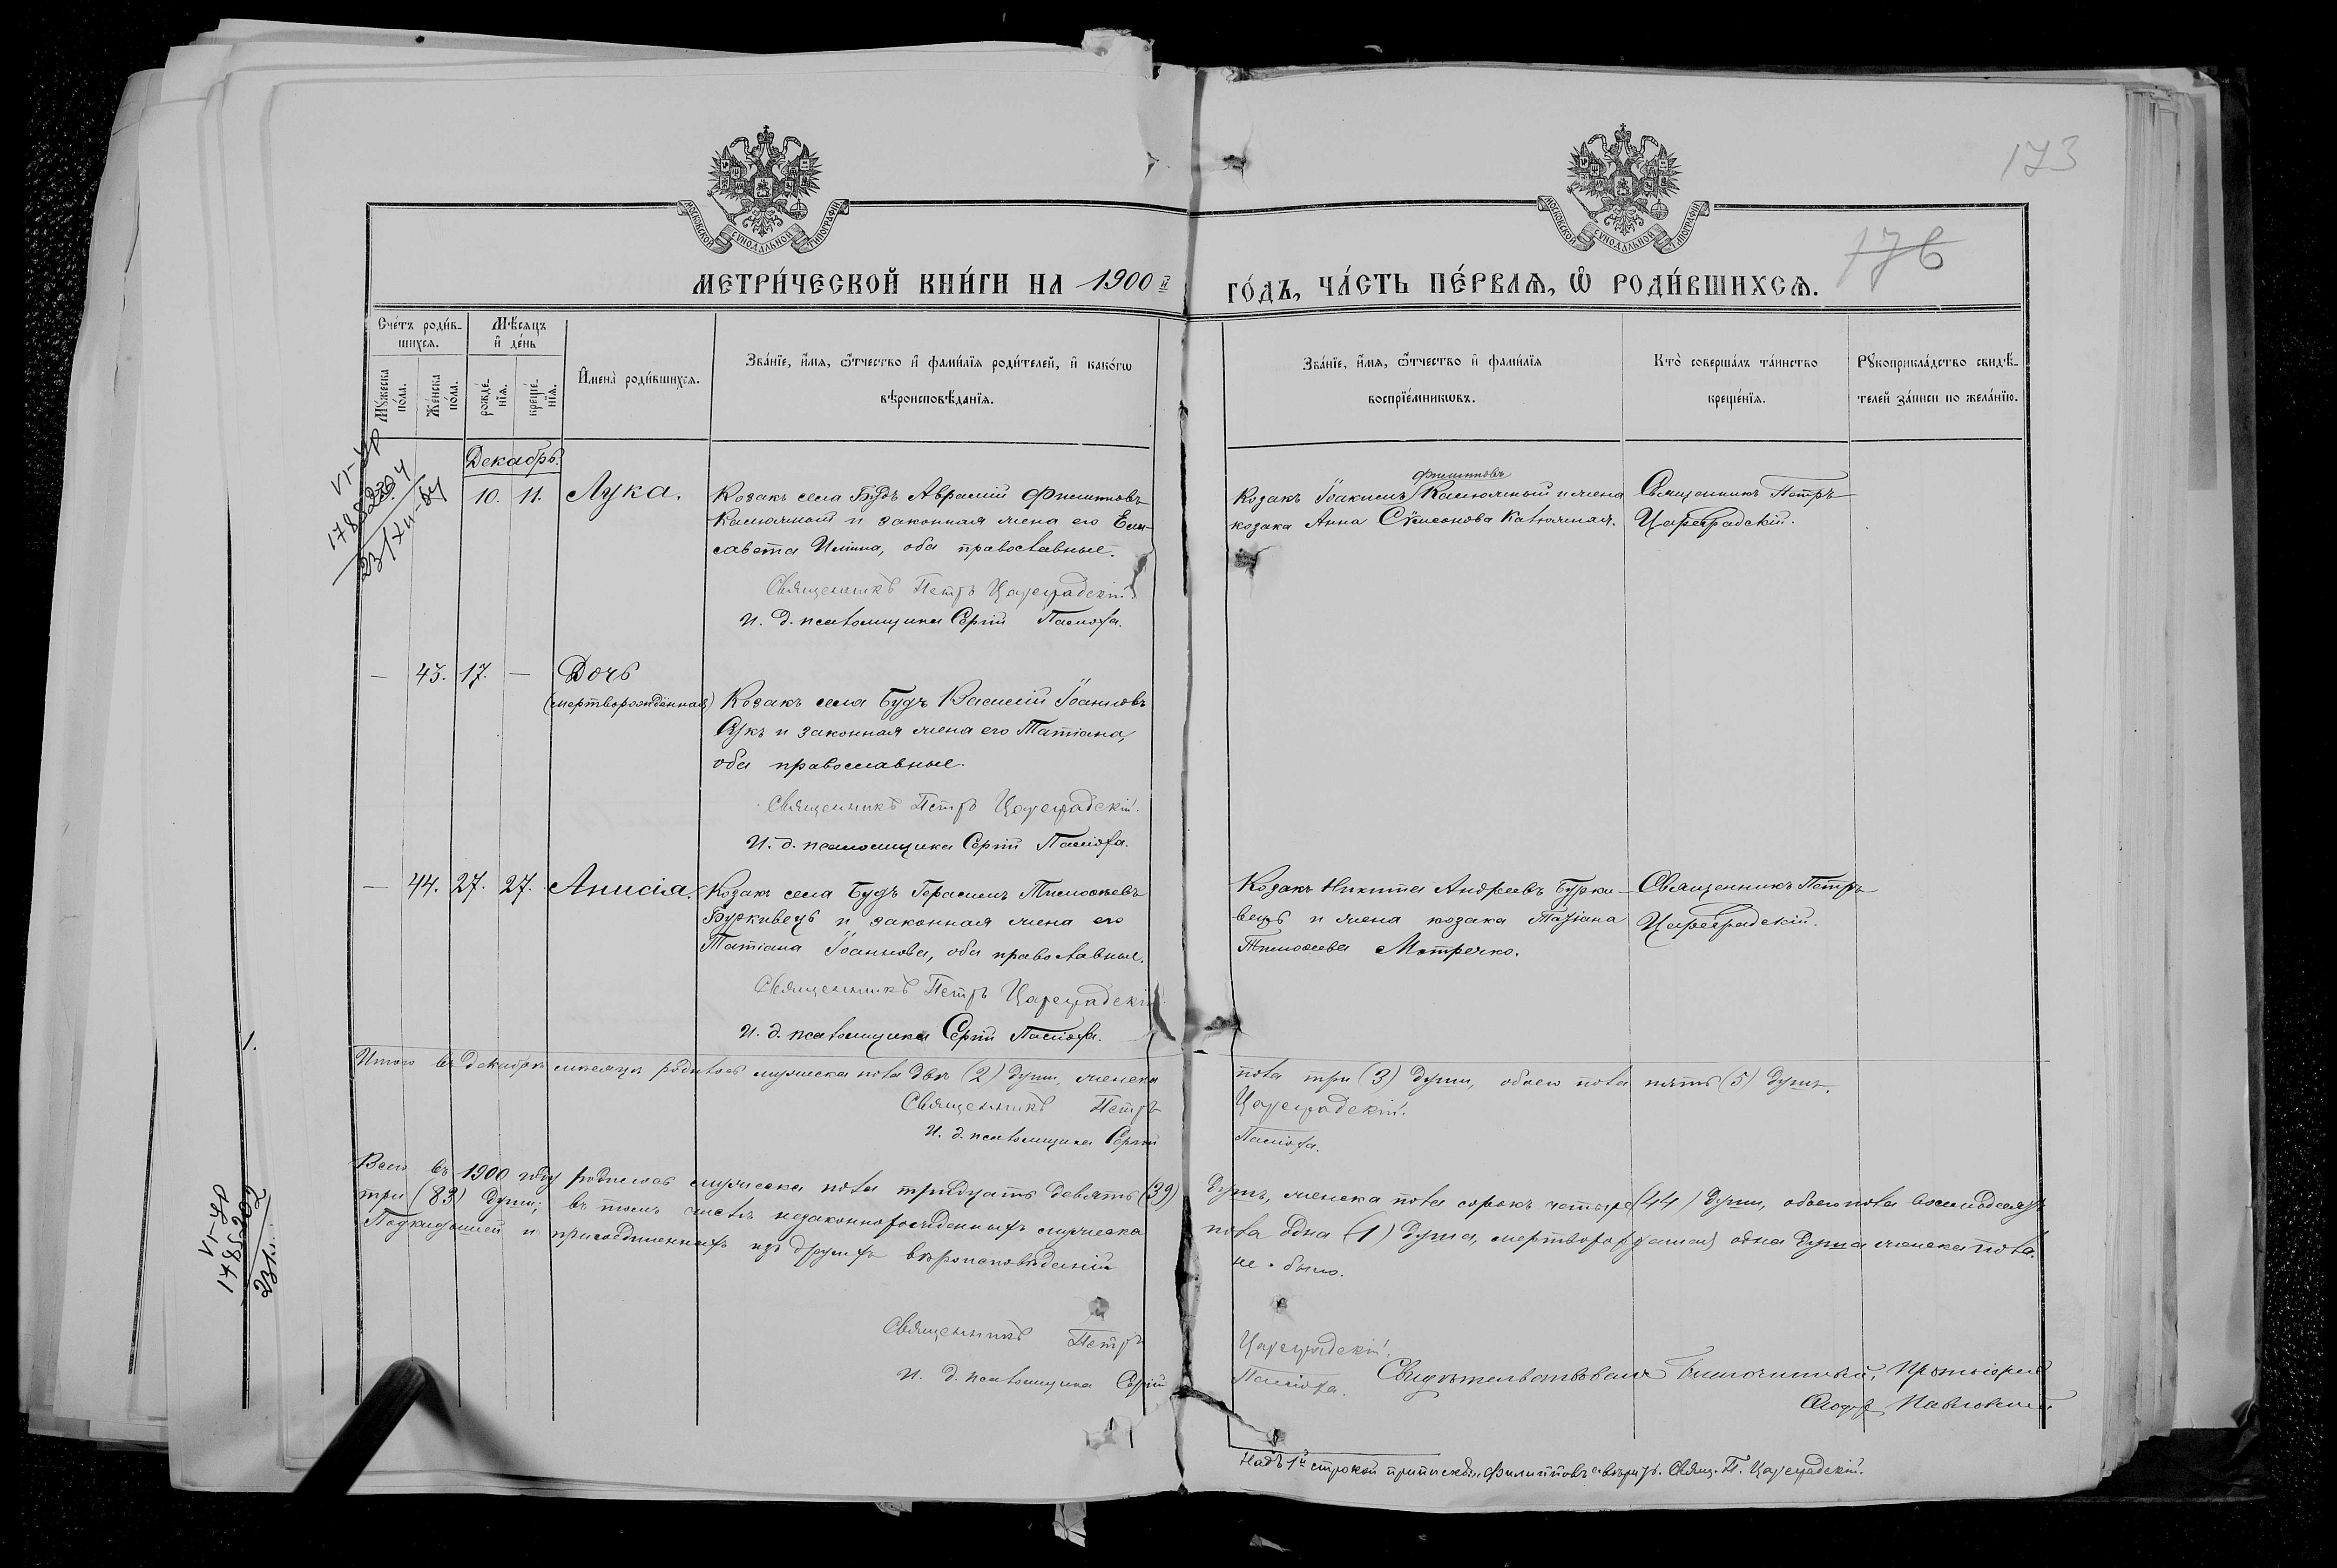 173
176
МОСКОВСКОЙ СѴНОДАЛЬНОЙ ТИПОГРАФИИ
МОСКОВСКОЙ СѴНОДАЛЬНОЙ ТИПОГРАФИИ
МЕТРИ́ЧЕСКОЙ КНИ́ГИ НА 1900й ГО́ДЪ, ЧА́СТЬ ПЕ́РВАѦ, Ѡ҆ РОДИ́ВШИХСѦ.
Сче́тъ роди́в-
шихсѧ.
Мѣ́сѧцъ
и҆ де́нь
Мꙋ́жеска
по́ла.
Же́нска
по́ла.
рожде́-
нїѧ.
креще́-
нїѧ.
И҆мена̀ роди́вшихсѧ.
Зва́нїе, и҆́мѧ, ѻ҆́тчество и҆ фами́лїѧ роди́телей, и҆ како́гѡ
вѣроисповѣ́данїѧ.
Зва́нїе, и҆́мѧ, ѻ҆́тчество и҆ фами́лїѧ
воспрїе́мникѡвъ.
Кто̀ соверша́лъ та́инство
креще́нїѧ.
Рꙋкоприкла́дство свидѣ́-
телей за́писи по жела́нїю.
Декабрь.
10. 11. Лука.
Козакъ села Будъ Аврамій Филипповъ
Калюжный и законная жена его Ели-
савета Илiина, оба православные.
Священникъ Петръ Цареградскій
И. д. псаломщика Сергій
Филипповъ
Козакъ Іоакимъ Калюжный и жена
козака Анна Сѵмеонова Калюжная.
Священникъ Петръ
Цареградскій.
— 43. 17. — Дочь
(мертворожденная)
Козакъ села Будъ Василій Іоанновъ
и законная жена его Татіана,
оба православные.
Священникъ Петръ Цареградскій.
И. д. псаломщика Сергій
— 44. 27. 27. Анисія.
Козакъ села Будъ Герасимъ Тимоѳеевъ
Буркивецъ и законная жена его
Татіана Іоаннова, оба православные.
Священникъ Петръ Цареградскій
И. д. псаломщика Сергій
Козакъ Никита Андреевъ Бурки-
вецъ и жена козака Татіана
Тимоѳеева Метречко.
Священникъ Петръ
Цареградскій.
Итого въ Декабрѣ мѣсяцѣ родилось мужеска пола двѣ (2) души, женска пола три (3) души, обоего пола пять (5) душъ.
Священникъ Петръ Цареградскій.
И. д. псаломщика Сергій
Всего въ 1900 году родилось мужеска пола тридцать девять (39) душъ, женска пола сорокъ четыре (44) души, обоего пола восемьдесятъ
три (83) души; въ томъ числѣ незаконнорожденныхъ мужеска пола одна (1) душа, одна душа женска пола.
Подкидышей и присоединенныхъ изъ другихъ вѣроисповѣданій не было.
Священникъ Петръ Цареградскій.
И. д. псаломщика Сергій
Свидѣтельствовалъ Благочинный, Протоіерей
Павловскій
Надъ 1й строкой приписка „Филипповъ“ вѣрна. Свящ. П. Цареградскій.
1.